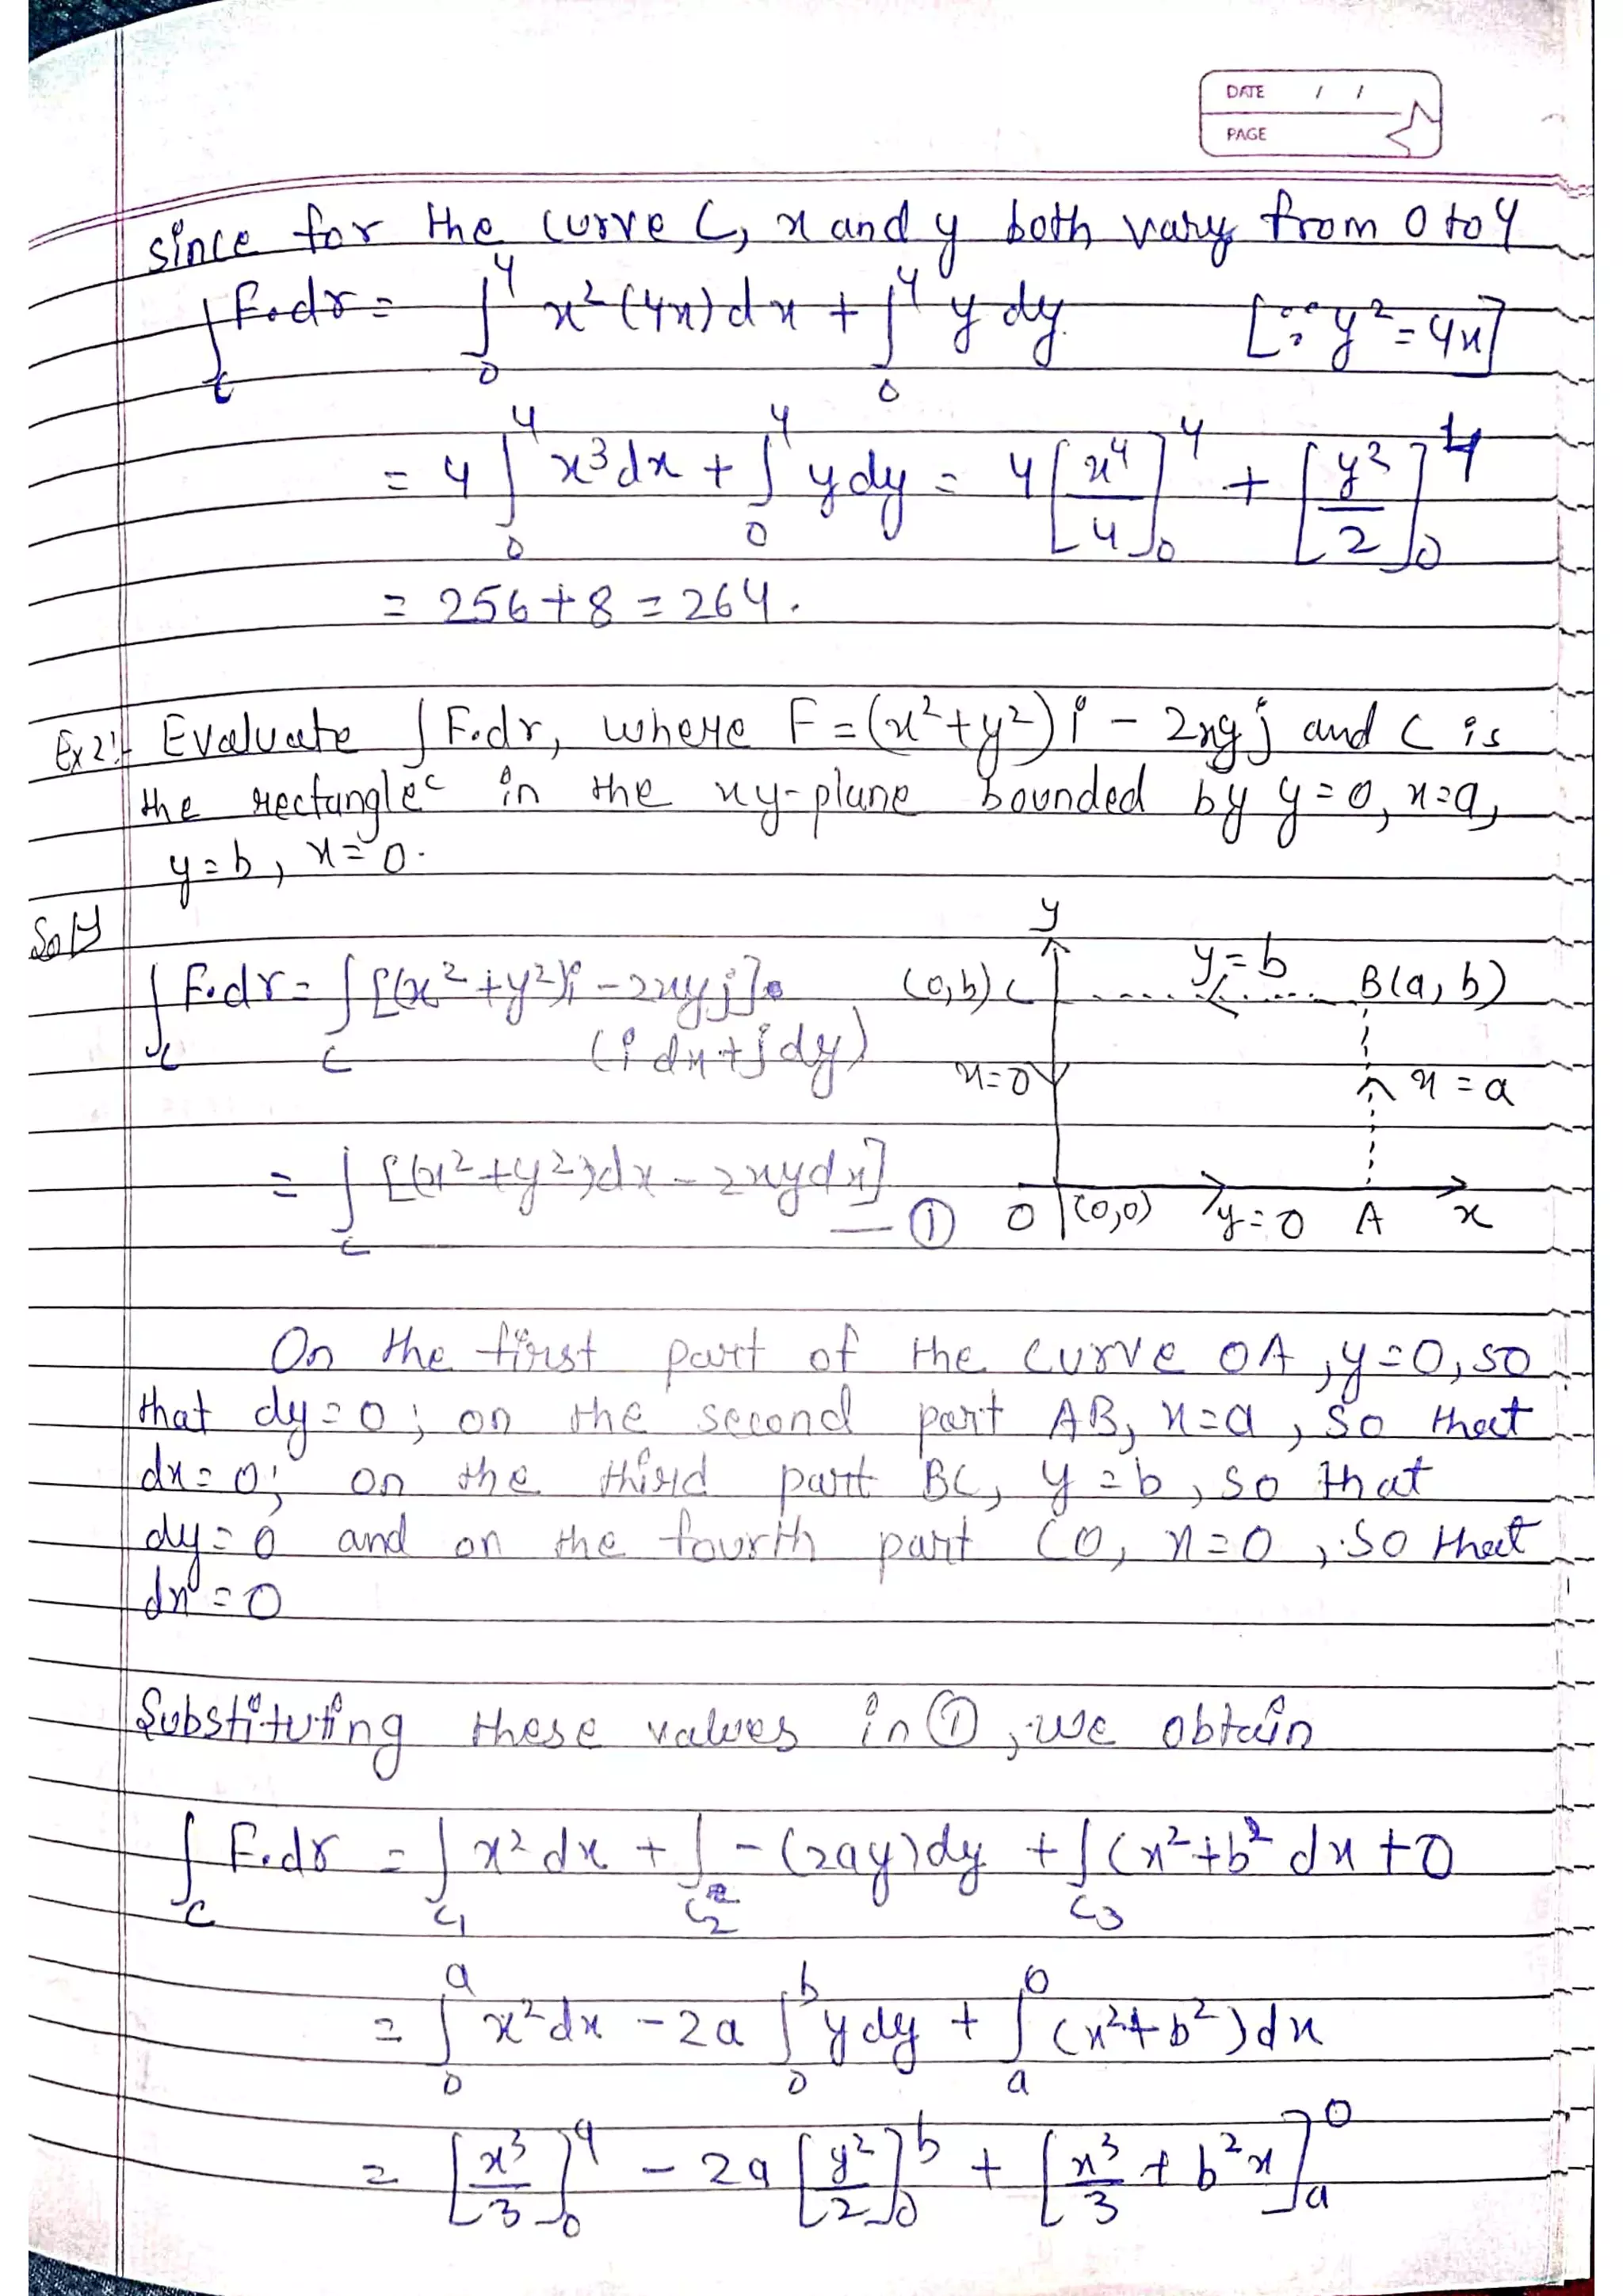 DATE / /
PAGE
since for the curve C, x and y both vary from 0 to 4
∫_C F.dr = ∫_0^4 x² (4x) dx + ∫_0^4 y dy [∵ y² = 4x]
= 4 ∫_0^4 x³ dx + ∫_0^4 y dy = 4 [x⁴/4]_0^4 + [y²/2]_0^4
= 256 + 8 = 264.
Ex 2:- Evaluate ∫_C F.dr, where F = (x² + y²) i - 2xy j and C is
the rectangle in the xy-plane bounded by y = 0, x = a,
y = b, x = 0.
Solⁿ
∫_C F.dr = ∫_C [(x² + y²) i - 2xy j].
(i dx + j dy)
= ∫_C [(x² + y²) dx - 2xy dx] — ①
y
(0, b) C y = b B(a, b)
x = 0 x = a
O (0,0) y = 0 A x
On the first part of the curve OA, y = 0, so
that dy = 0; on the second part AB, x = a, so that
dx = 0; on the third part BC, y = b, so that
dy = 0 and on the fourth part CO, x = 0, so that
dx = 0
Substituting these values in ①, we obtain
∫_C F.dr = ∫_C1 x² dx + ∫_C2 - (2ay) dy + ∫_C3 (x² + b² dx + 0
= ∫_0^a x² dx - 2a ∫_0^b y dy + ∫_a^0 (x² + b²) dx
= [x³/3]_0^a - 2a [y²/2]_0^b + [x³/3 + b²x]_a^0